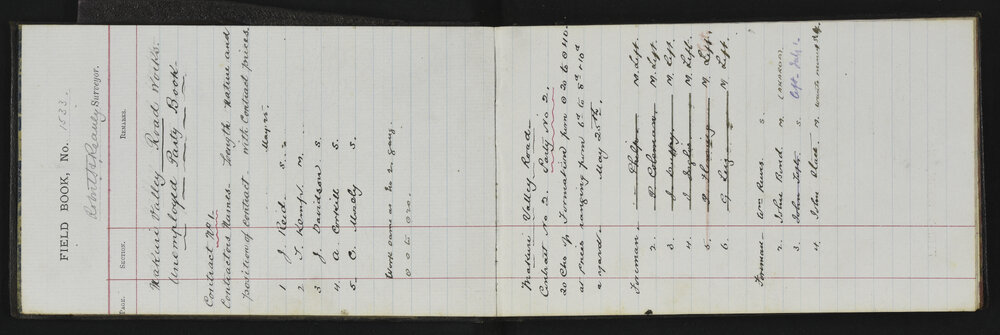 FIELD BOOK, No. 1533.
Robert H. Reaney Surveyor.
PAGE. SECTION. REMARKS.
Makuri Valley Road Works.
Unemployed Party Book
Contract No 1.
Contractors Names. Length Nature and
position of Contract. with Contract prices.
May 25
1 J. Reid S.
2 T. Kemp. M.
3 J. Davidson S.
4. A. Corkill S.
5. C. S.
Work same as No 2 gang
0 0 to 0 20.
Makuri Valley Road
Contract No 2. Party No 2.
20 Chs of Formation from 0 20 to 0 40.
at prices ranging from 6d to 8d & 10d
a yard. May 25th
Foreman Philp M. Left.
2. P Coleman M. Left.
3. J. Duffy M. Left.
4. J. M. Left.
5. M. Left.
6. G M Left.
Foreman Wm S.
2. John Bond M.
3. John S. left July 1
4. John Clark M.